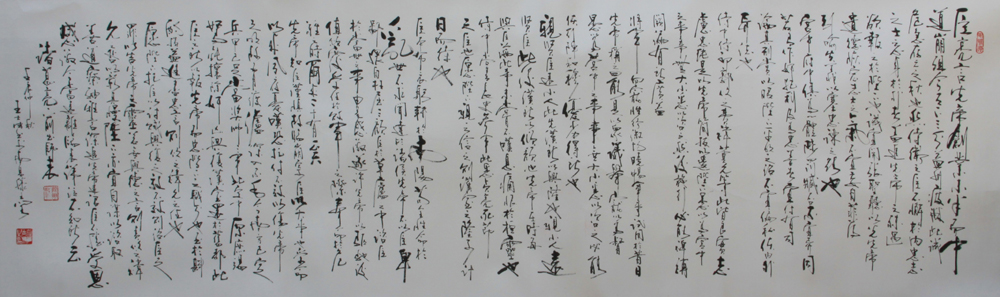 臣亮言先帝創業未半而中
道崩殂今天下三分益州疲敝此誠
危急存亡之秋也然侍衛之臣不懈於內忠志
之士忘身於外者蓋追先帝之殊遇
欲報之於陛下也誠宜開張聖聽以光先帝
遺德恢弘志士之氣不宜妄自菲薄
引喻失義以塞忠諫之路也
宮中府中俱為一體陟罰臧否不宜異同
若有作奸犯科及為忠善者宜付有司
論其刑賞以昭陛下平明之治不宜偏私使內外
異法也
侍中侍郎郭攸之費禕董允等此皆良實志
慮忠純是以先帝簡拔以遺陛下愚以為宮中
之事事無大小悉以咨之然後施行必能裨補
闕漏有所廣益
將軍向寵性行淑均曉暢軍事試用於昔日
先帝稱之曰能是以眾議舉寵為督
愚以為營中之事事無大小悉以咨之必能
使行陣和睦優劣得所也
親賢臣遠小人此先漢所以興隆也親小人遠
賢臣此後漢所以傾頹也先帝在時每
與臣論此事未嘗不歎息痛恨於桓靈也
侍中尚書長史參軍此悉貞亮死節
之臣也願陛下親之信之則漢室之隆可計
日而待也
臣本布衣躬耕於南陽苟全性命於
亂世不求聞達於諸侯先帝不以臣卑
鄙猥自枉屈三顧臣於草廬之中諮臣
以當世之事由是感激遂許先帝以驅馳後
值傾覆受任於敗軍之際奉命於危
難之間爾來二十有一年矣
先帝知臣謹慎故臨崩寄臣以大事也受命
以來夙夜憂歎恐託付不效以傷先帝
之明故五月渡瀘深入不毛今南方已定
兵甲已足當獎率三軍北定中原庶竭
駑鈍攘除奸凶興復漢室還於舊都此
臣所以報先帝而忠陛下之職分也至於斟
酌損益進盡忠言則攸之禕允之任也
願陛下託臣以討賊興復之效不效則治臣之
罪以告先帝之靈若無興德之言則責攸之禕
允等之慢以彰其咎陛下亦宜自謀以諮諏
善道察納雅言深追先帝遺詔臣不勝受恩
感激今當遠離臨表涕零不知所云
諸葛亮前出師表